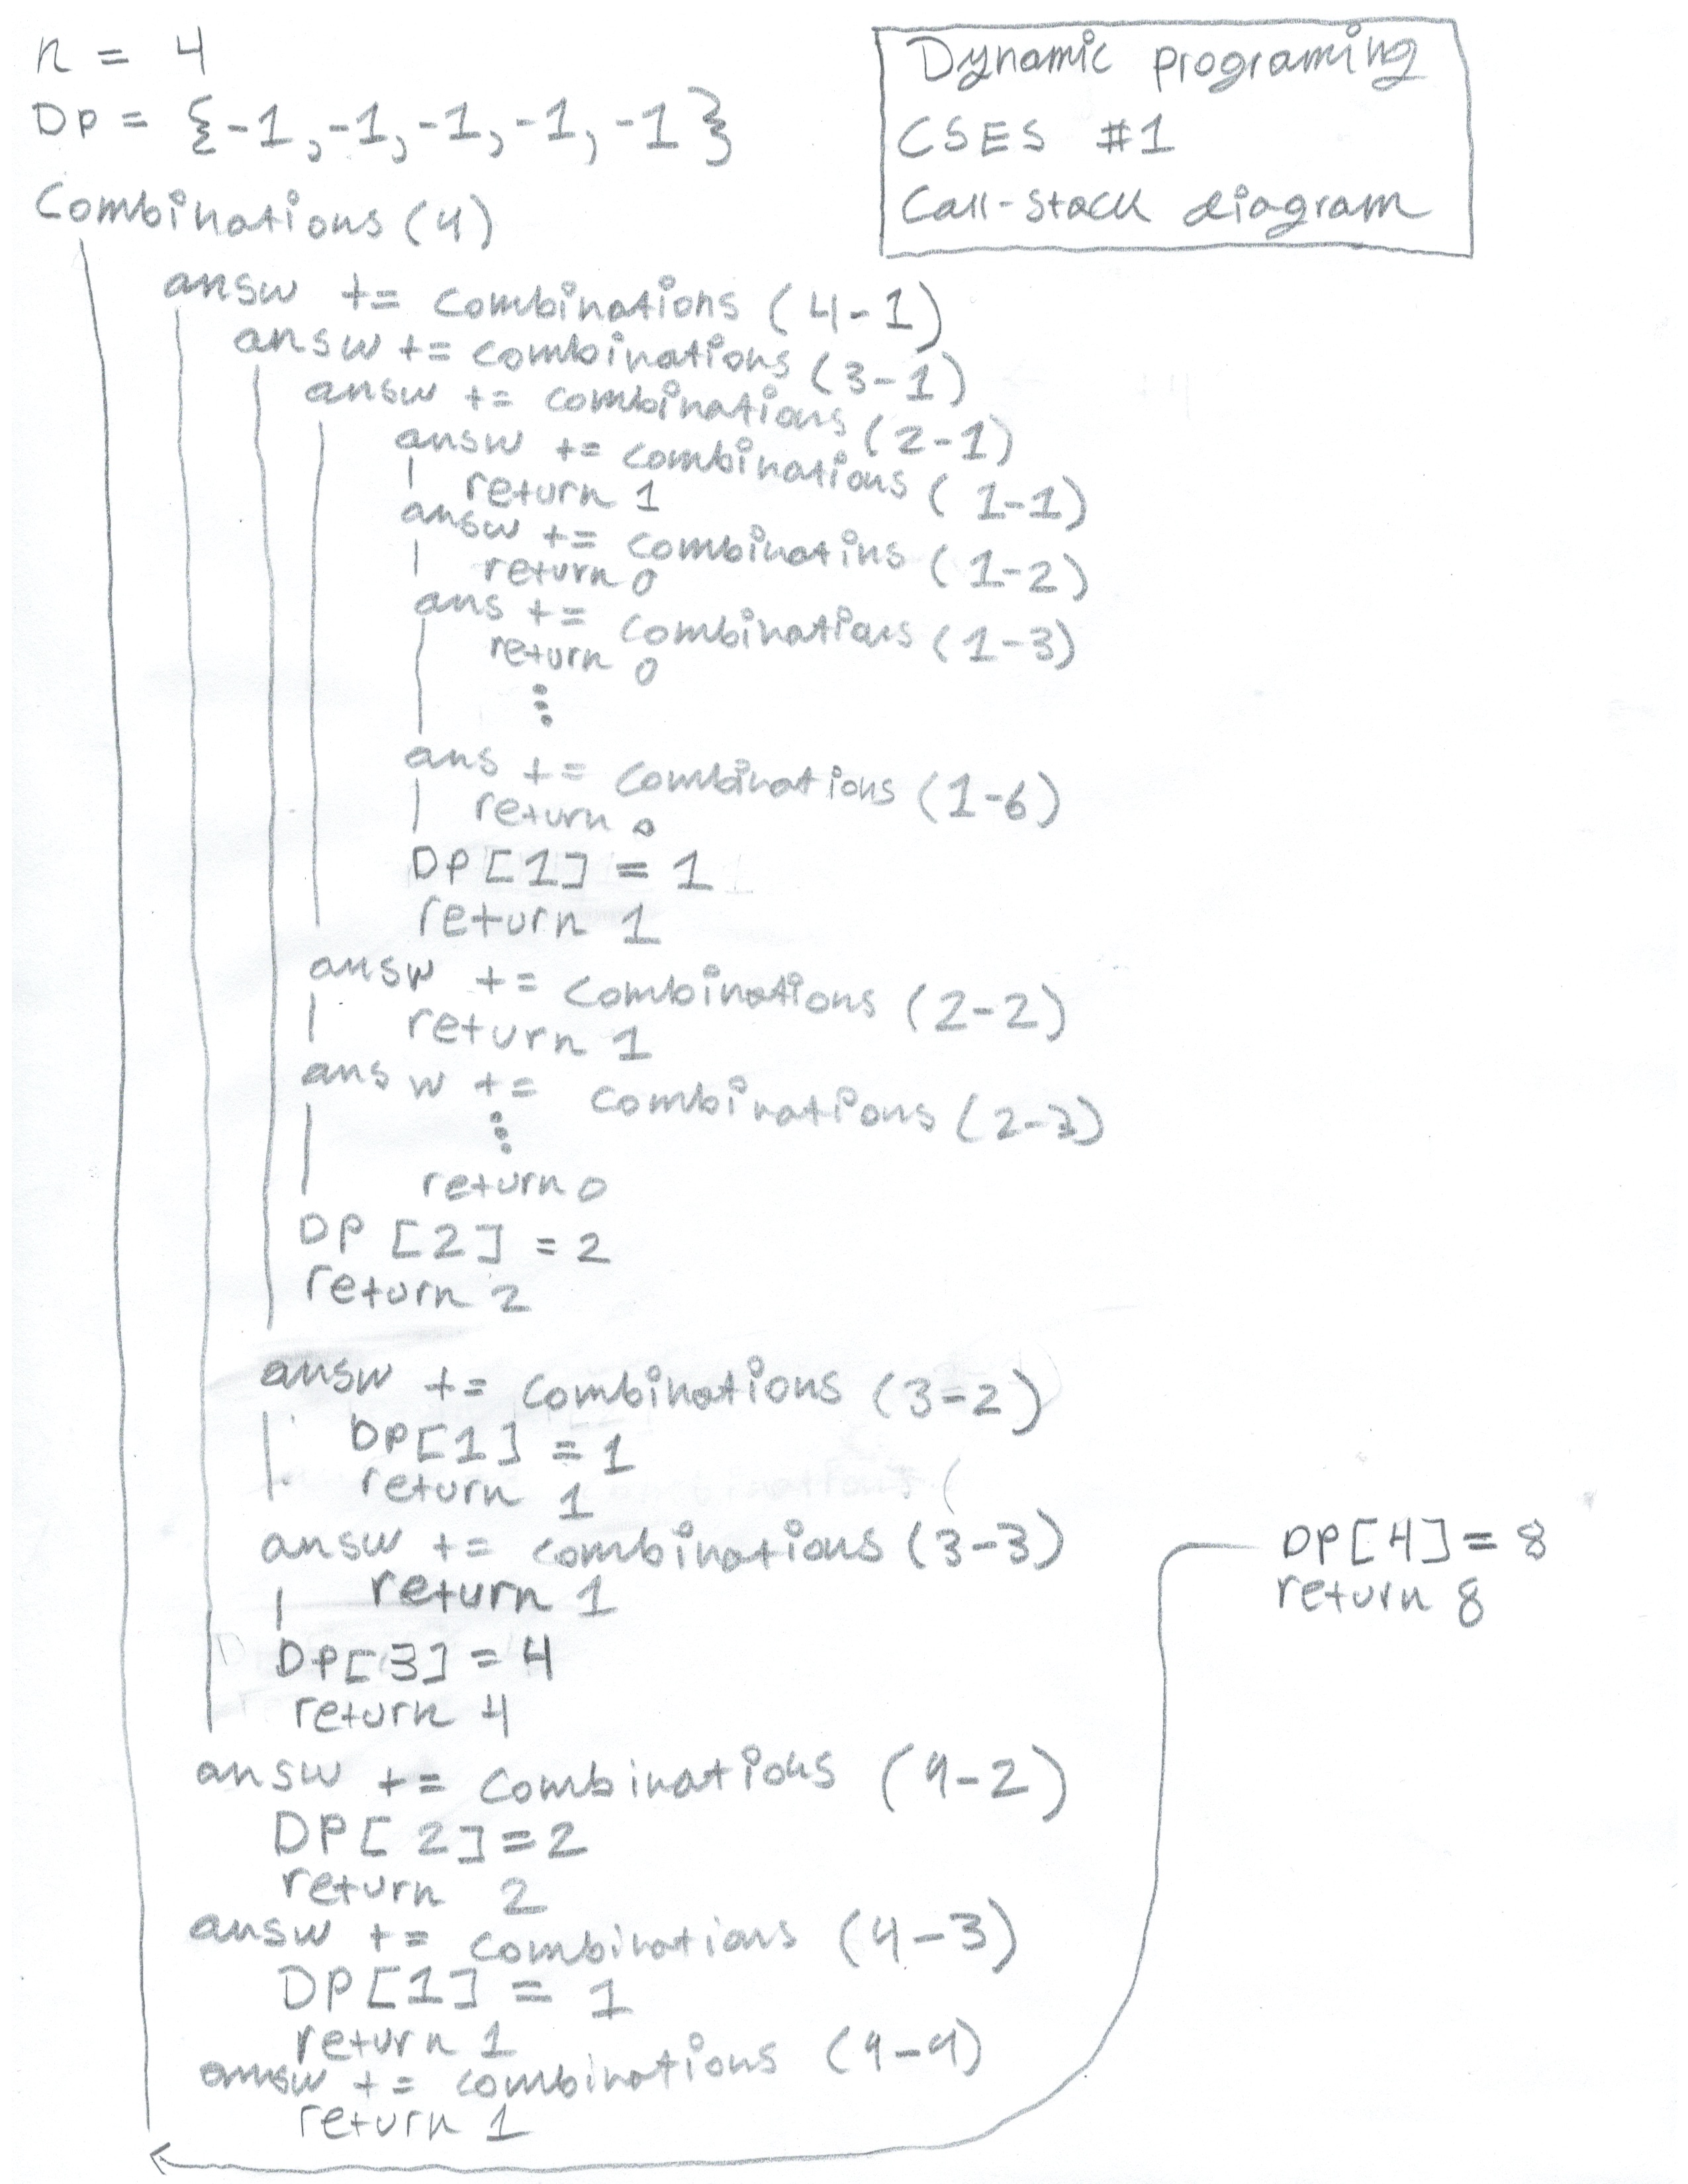 n = 4
Dp = {-1, -1, -1, -1, -1}
Combinations (4)
Dynamic programing
CSES #1
Call-stack diagram
answ += combinations (4-1)
answ += combinations (3-1)
answ += combinations (2-1)
answ += combinations (1-1)
return 1
answ += combinatins (1-2)
return 0
ans += combinations (1-3)
return 0
⋮
ans += combinations (1-6)
return 0
DP[1] = 1
return 1
answ += combinations (2-2)
return 1
answ += combinations (2-3)
⋮
return 0
DP [2] = 2
return 2
answ += combinations (3-2)
DP[1] = 1
return 1
answ += combinations (3-3)
return 1
DP[3] = 4
return 4
answ += combinations (4-2)
DP[2] = 2
return 2
answ += combinations (4-3)
DP[1] = 1
return 1
answ += combinations (4-4)
return 1
DP[4] = 8
return 8